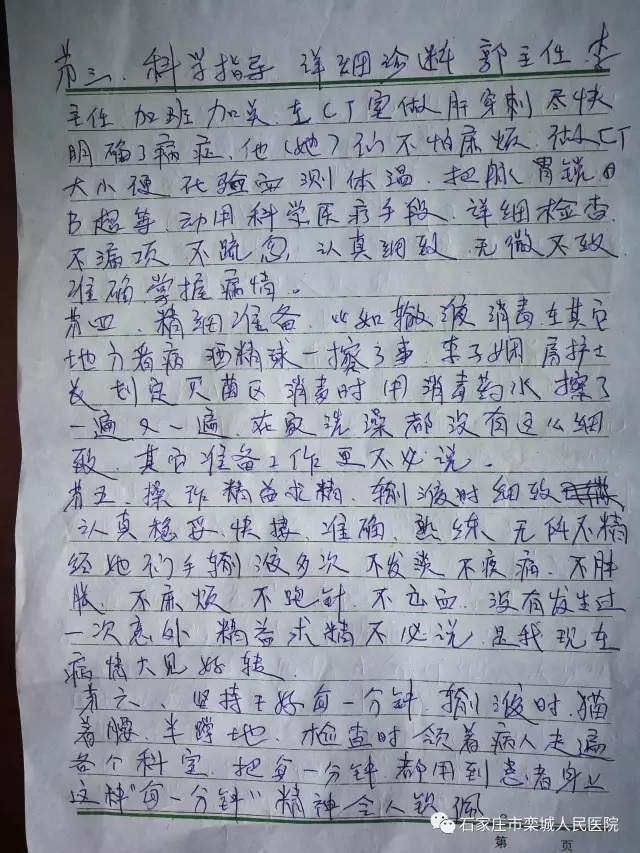 第三、科学指导 详细诊断 郭主任 李
主任 加班加点 在CT室做肝穿刺 尽快
明确了病症、他(她)们不怕麻烦、做CT
大小便化验 测体温、把脉 胃镜
B超等、动用科学医疗手段、详细检查、
不漏项 不疏忽、认真细致 无微不致、
准确掌握病情。
第四、精细准备、比如输液消毒、在其它
地方看病 酒精球一擦了事 李子娴 房护士
长 划定灭菌区 消毒时用消毒药水 擦了
一遍又一遍 洗澡都没有这么细
致、其它准备工作更不必说。
第五、操作精益求精、输液时细致
认真稳妥、快捷、准确、熟练、无所不精
经她们手输液多次 不发炎 不疾病、不肿
胀、不麻烦 不跑针、不出血、没有发生过
一次意外 精益求精不必说 是我现在
病情大见好转
第六、坚持干好每一分钟、输液时、猫
着腰、半蹲地、检查时领着病人走遍
各个科室、把每一分钟、都用到患者身上
这种"每一分钟"精神令人钦佩。
石家庄市栾城人民医院
第 页